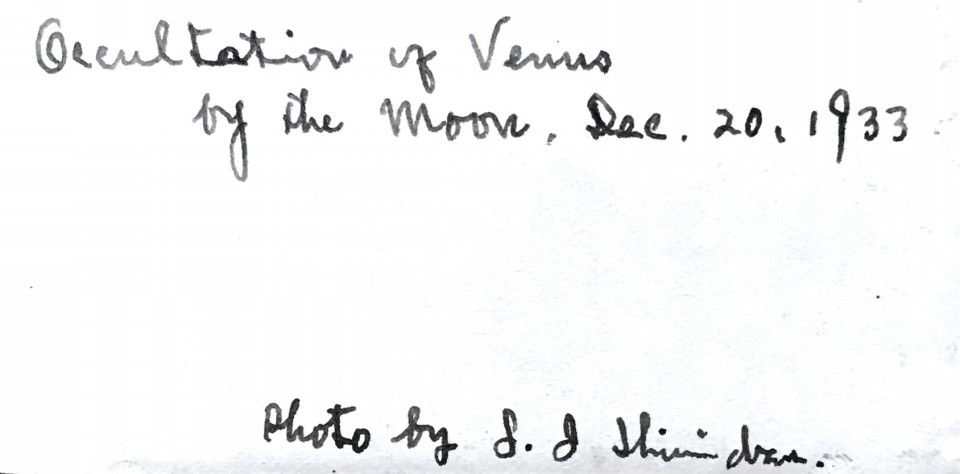 Occultation of Venus
by the Moon, Dec. 20, 1933
Photo by